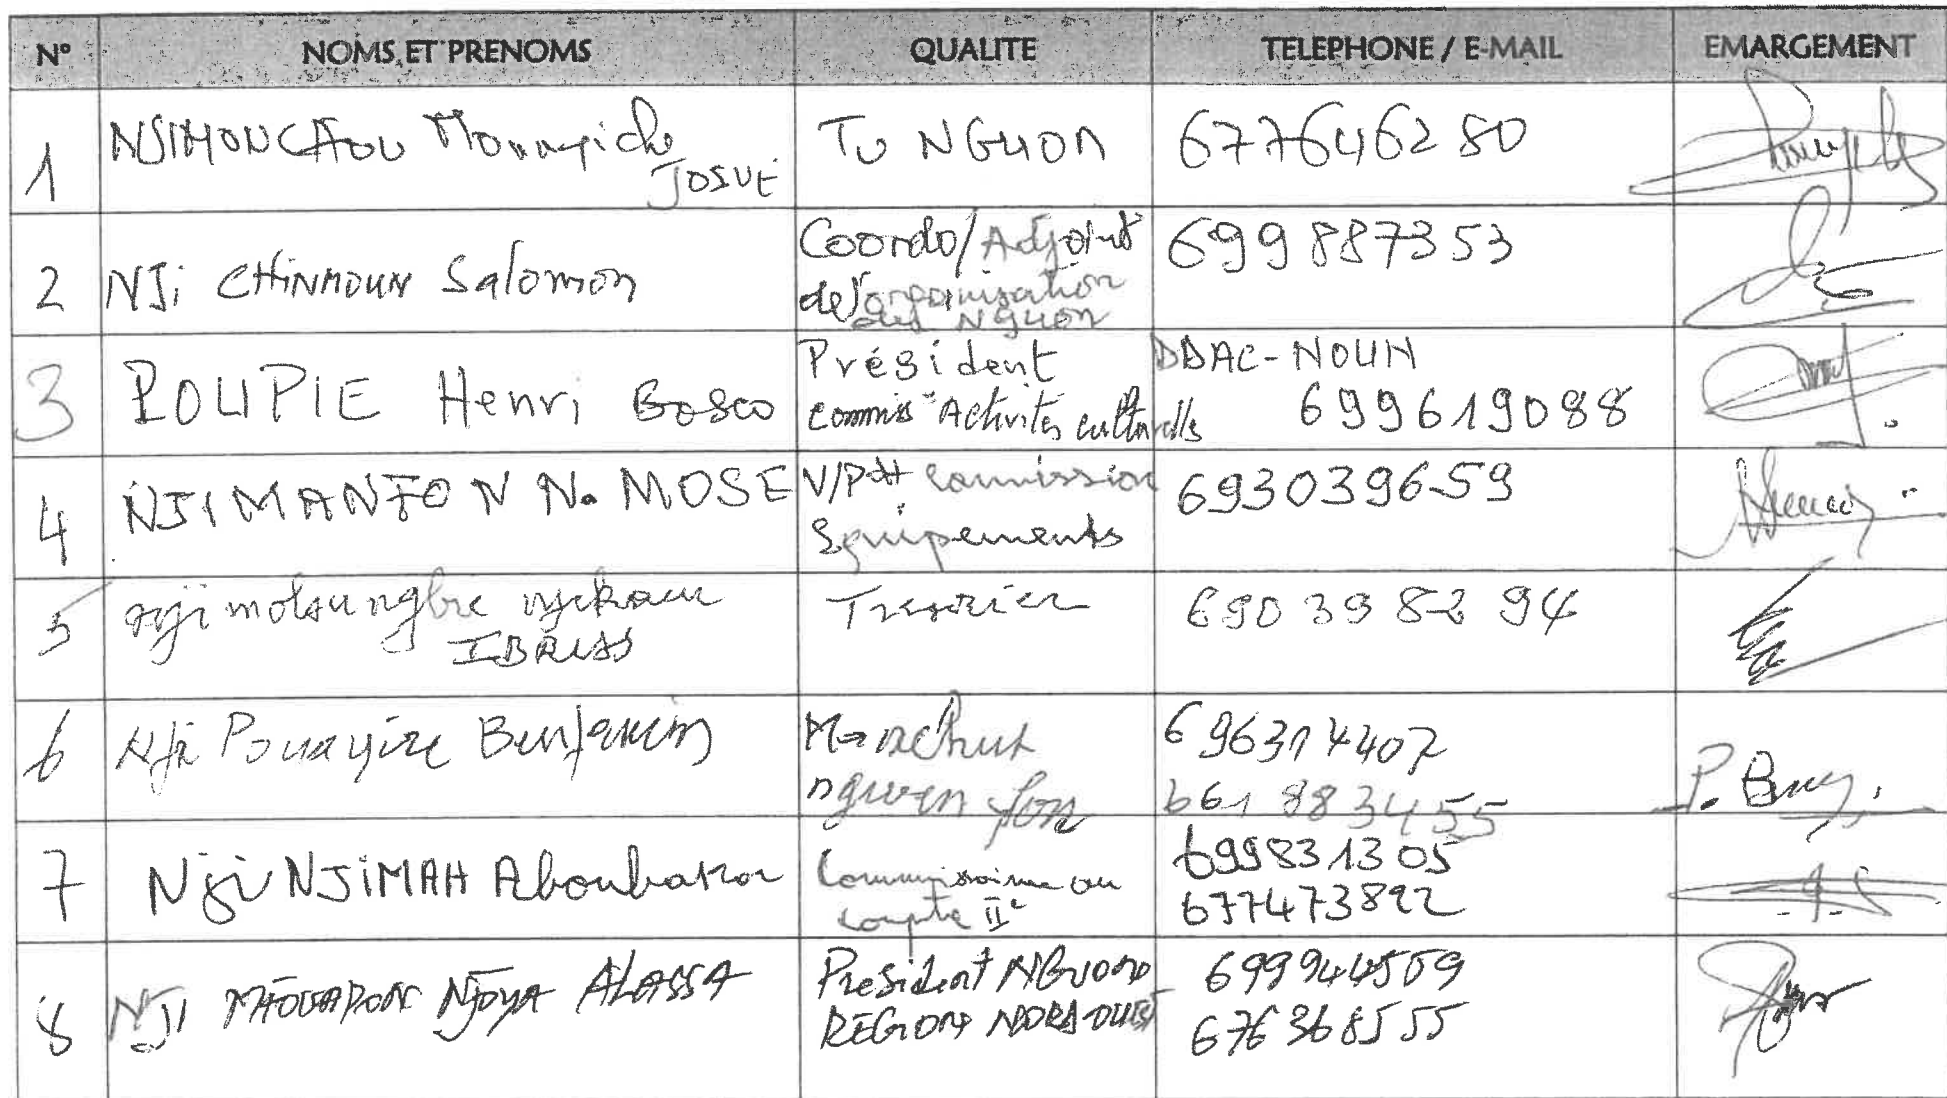 N° NOMS ET PRENOMS QUALITE TELEPHONE / E-MAIL EMARGEMENT
1 NSIMONCHOU JOSUE TU NGUON 677646280
2 NJi CHINMOUN Salomon Coordo/Adjoint de l'organisation du NGUON 699887353
3 POUPIE Henri Bosco Président Commis° Activités culturelles DDAC-NOUN 699619088
4 NJIMANFON N. MOSE V/Pdt Commission Equipements 693039659
5 IBRISS Tresorier 690398294
6 Nji Benjamin 696314407
661883455 P. Benj.
7 Nji NJIMAH Aboubakar Commissaire au compte IIe 699831305
677473892
8 NJI NJOYA ALASSA President NGUON REGION NORD-OUEST 699944559
676368555